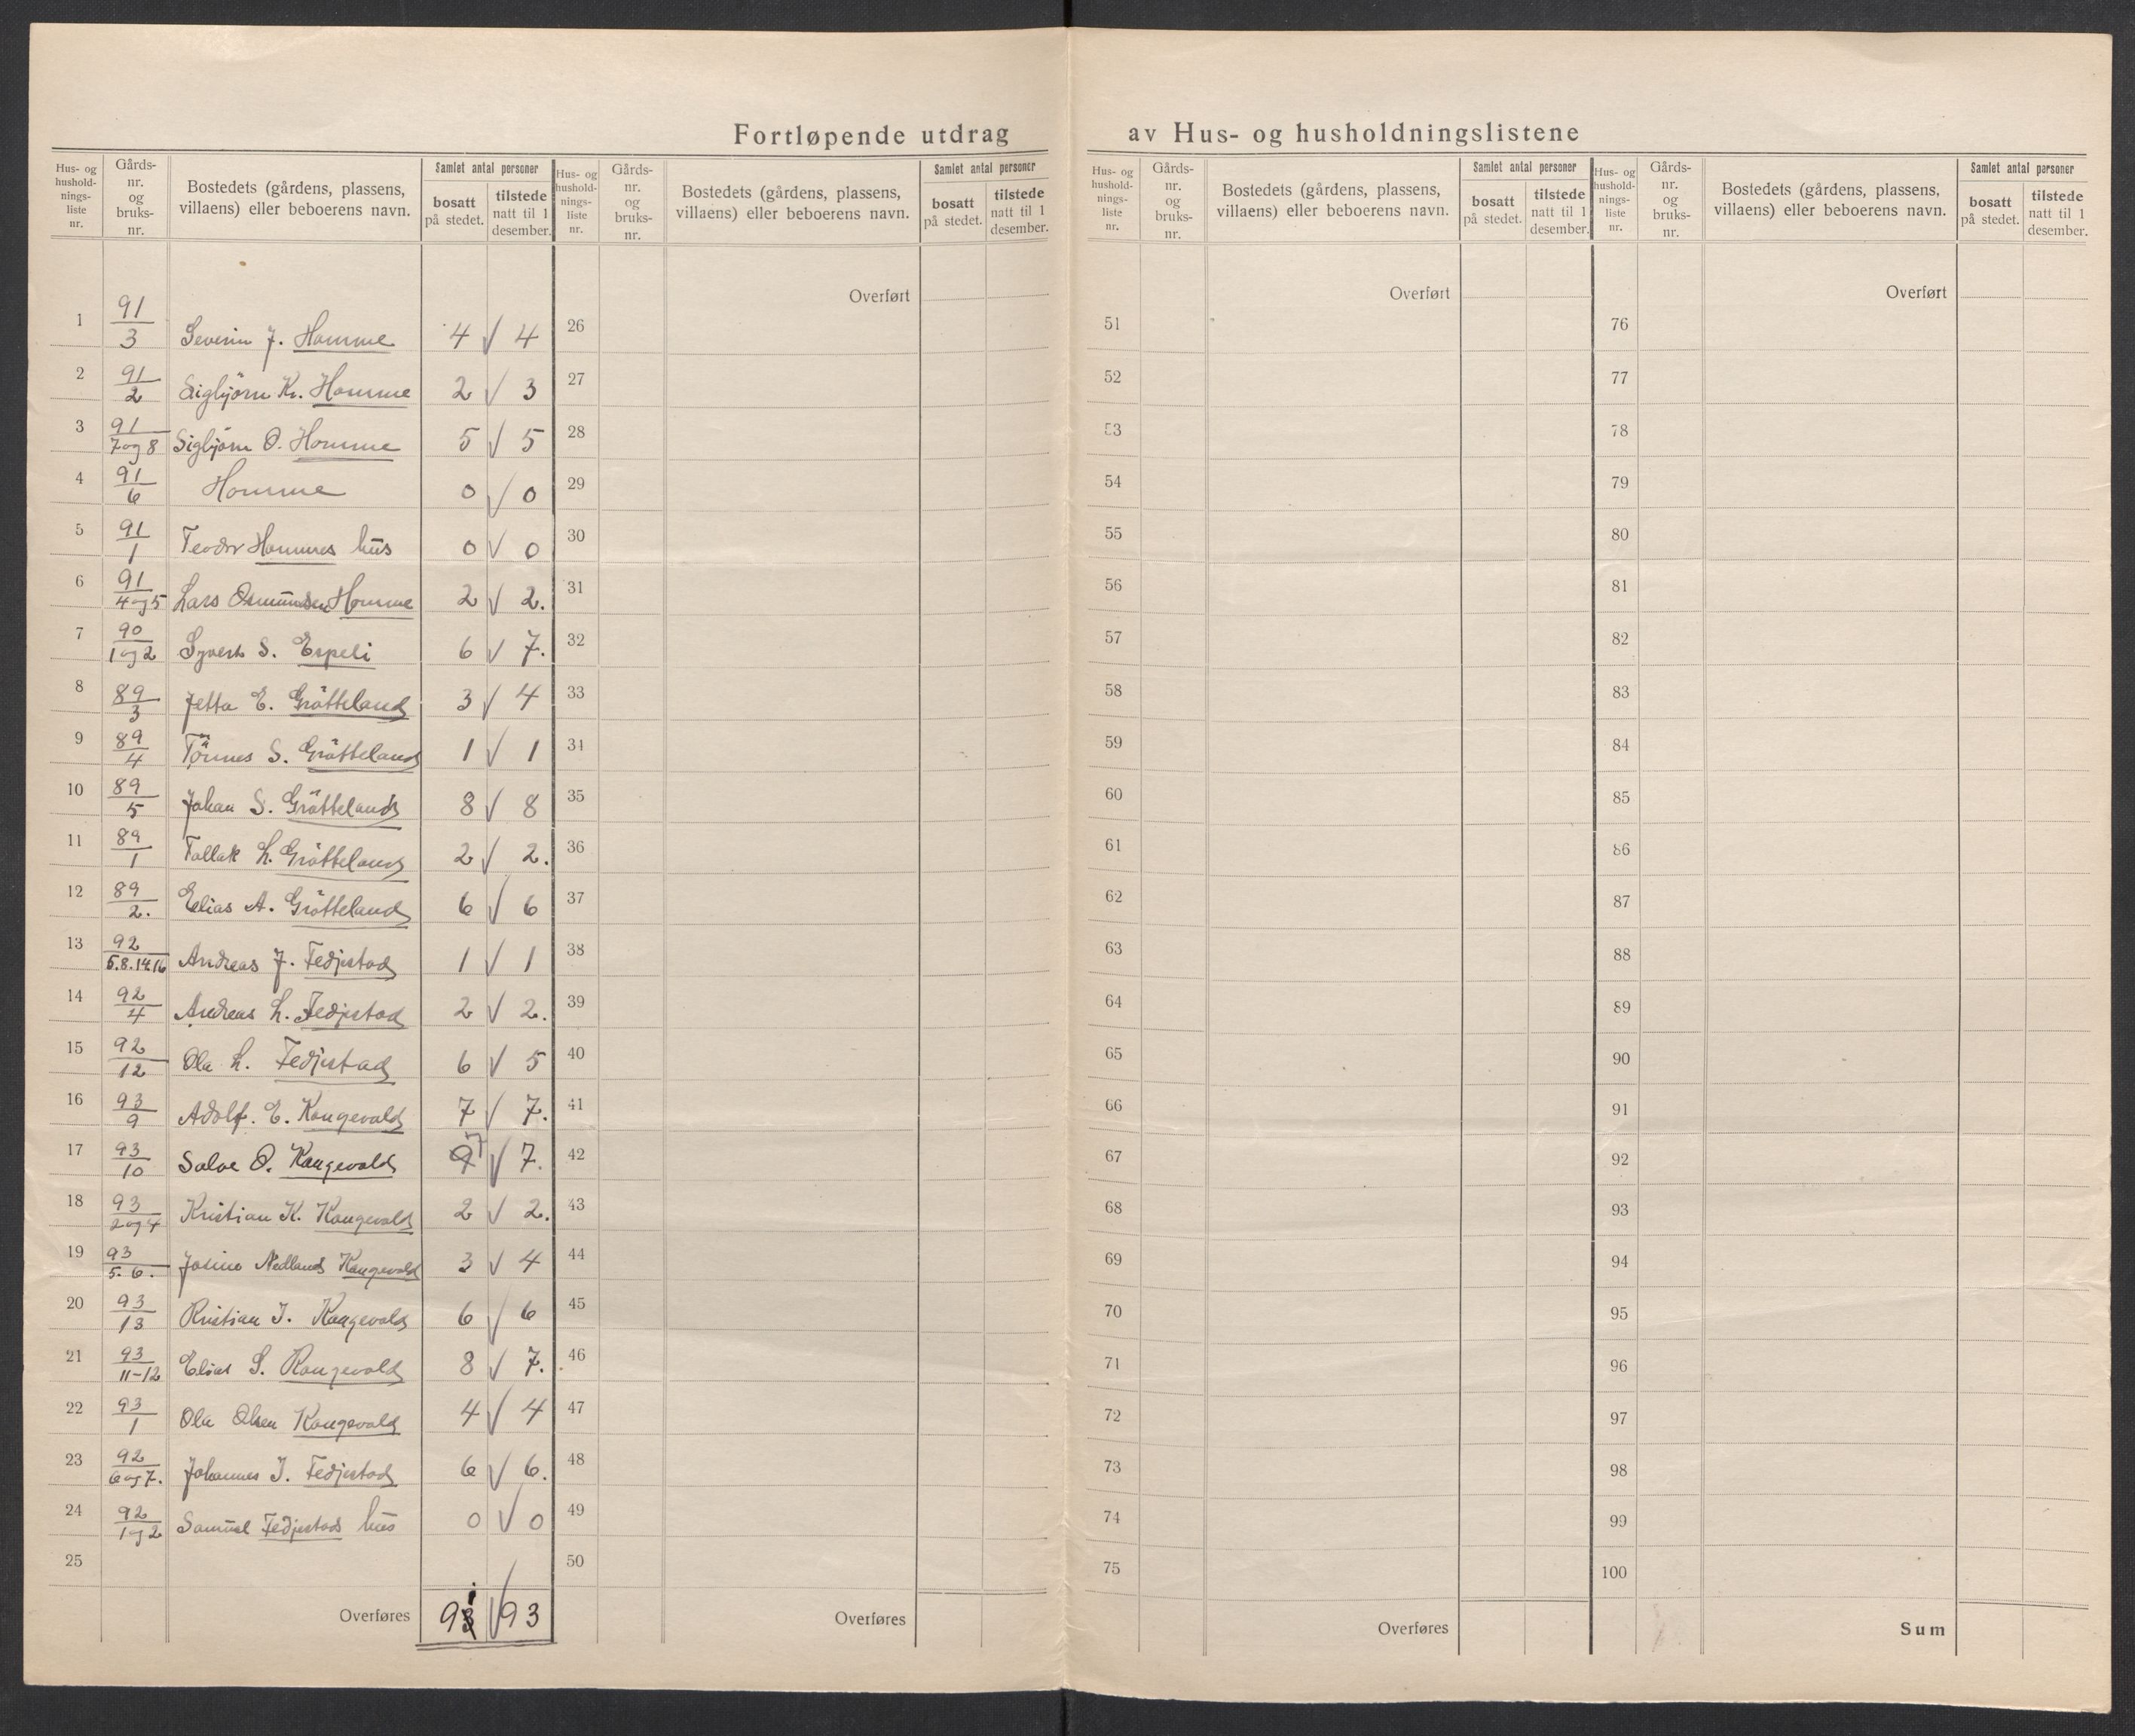 Fortløpende utdrag av Hus- og husholdningslistene
Hus- og hushold-nings-liste nr. Gårds-nr. og bruks-nr. Bostedets (gårdens, plassens, villaens) eller beboerens navn. Samlet antal personer bosatt på stedet. tilstede natt til 1 desember.
Hus- og hushold-nings-liste nr. Gårds-nr. og bruks-nr. Bostedets (gårdens, plassens, villaens) eller beboerens navn. Samlet antal personer bosatt på stedet. tilstede natt til 1 desember.
Hus- og hushold-nings-liste nr. Gårds-nr. og bruks-nr. Bostedets (gårdens, plassens, villaens) eller beboerens navn. Samlet antal personer bosatt på stedet. tilstede natt til 1 desember.
Hus- og hushold-nings-liste nr. Gårds-nr. og bruks-nr. Bostedets (gårdens, plassens, villaens) eller beboerens navn. Samlet antal personer bosatt på stedet. tilstede natt til 1 desember.
Overført Overført Overført
1 91/3 Severin J. Homme 4 √ 4 26 51 76
2 91/2 Sigbjörn Kr. Homme 2 √ 3 27 52 77
3 91/7 og 8 Sigbjörn O. Homme 5 √ 5 28 53 78
4 91/6 Homme 0 √ 0 29 54 79
5 91/1 Teodor Hommes hus 0 √ 0 30 55 80
6 91/4 og 5 Lars Osmundsen Homme 2 √ 2. 31 56 81
7 90/1 og 2 Syvert S. Espeli 6 √ 7. 32 57 82
8 89/3 Jetta E. Gråtteland 3 √ 4 33 58 83
9 89/4 Tönnes S. Gråtteland 1 √ 1 34 59 84
10 89/5 Johan S. Gråtteland 8 √ 8 35 60 85
11 89/1 Tallak L. Gråtteland 2 √ 2. 36 61 86
12 89/2. Elias A. Gråtteland 6 √ 6 37 62 87
13 92/5.8.14.16 Andreas J. Fedjestad 1 √ 1 38 63 88
14 92/4 Andreas L. Fedjestad 2 √ 2. 39 64 89
15 92/12 Ola L. Fedjestad 6 √ 5 40 65 90
16 93/9 Adolf. E. Kongevold 7 √ 7. 41 66 91
17 93/10 Salve O. Kongevold 7 √ 7. 42 67 92
18 93/2 og 4 Kristian K. Kongevold 2 √ 2. 43 68 93
19 93/5. 6. Josine Nedland Kongevold 3 √ 4 44 69 94
20 93/13 Kristian J. Kongevold 6 √ 6 45 70 95
21 93/11-12 Elias S. Kongevold 8 √ 7. 46 71 96
22 93/1 Ola Olsen Kongevold 4 √ 4 47 72 97
23 92/6 og 7. Johannes J. Fedjestad 6 √ 6. 48 73 98
24 92/1 og 2 Samuel Fedjestads hus 0 √ 0 49 74 99
25 50 75 100
Overføres 91 √ 93 Overføres Overføres Sum